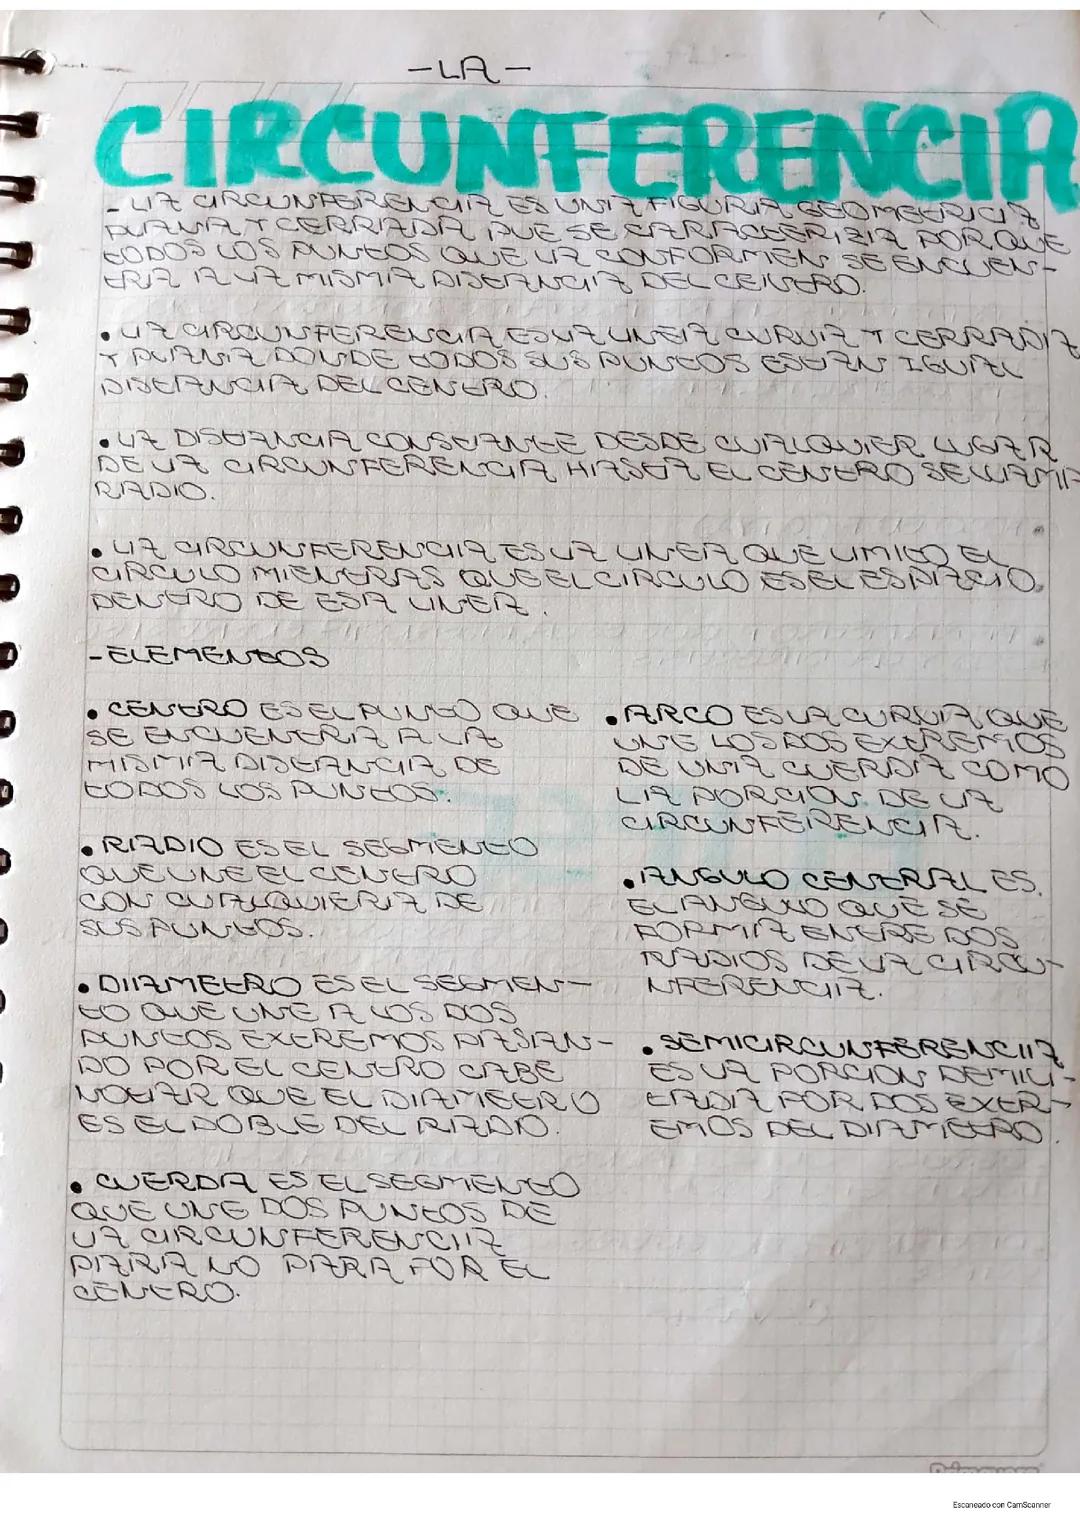 -LA-
CIRCUNFERENCIA
- LA CIRCUNFERENCIA ES UNA FIGURA GEOMETRICA
PLANA Y CERRADA QUE SE CARACTERIZA PORQUE
TODOS LOS PUNTOS QUE LA CONFORMEN SE ENCUEN-
TRA A LA MISMA DISTANCIA DEL CENTRO.
• LA CIRCUNFERENCIA ES LA LINEA CURVA Y CERRADA
Y PLANA DONDE TODOS SUS PUNTOS ESTAN IGUAL
DISTANCIA DEL CENTRO.
• LA DISTANCIA CONSTANTE DESDE CUALQUIER LUGAR
DE LA CIRCUNFERENCIA HASTA EL CENTRO SE LLAMA
RADIO.
• LA CIRCUNFERENCIA ES LA LINEA QUE LIMITO EL
CIRCULO MIENTRAS QUE EL CIRCULO ES EL ESPACIO
DENTRO DE ESTA LINEA.
-ELEMENTOS
• CENTRO ES EL PUNTO QUE
SE ENCUENTRA A LA
MISMA DISTANCIA DE
TODOS LOS PUNTOS.
• RADIO ES EL SEGMENTO
QUE UNE EL CENTRO
CON CUALQUIERA DE
SUS PUNTOS.
• DIAMETRO ES EL SEGMEN-
TO QUE UNE A LOS DOS
PUNTOS EXTREMOS PASAN-
DO POR EL CENTRO CABE
NOTAR QUE EL DIAMETRO
ES EL DOBLE DEL RADIO.
• CUERDA ES EL SEGMENTO
QUE UNE DOS PUNTOS DE
LA CIRCUNFERENCIA
PARA NO PARA POR EL
CENTRO.
• ARCO ES LA CURVA QUE
UNE LOS DOS EXTREMOS
DE UNA CUERDA COMO
LA PORCION DE LA
CIRCUNFERENCIA.
• ANGULO CENTRAL ES
EL ANGULO QUE SE
FORMA ENTRE DOS
RADIOS DE LA CIRCU-
NFERENCIA.
• SEMICIRCUNFERENCIA
ES LA PORCION DEMILI-
TADA POR DOS EXTR-
EMOS DEL DIAMETRO.
Escaneado con CamScanner